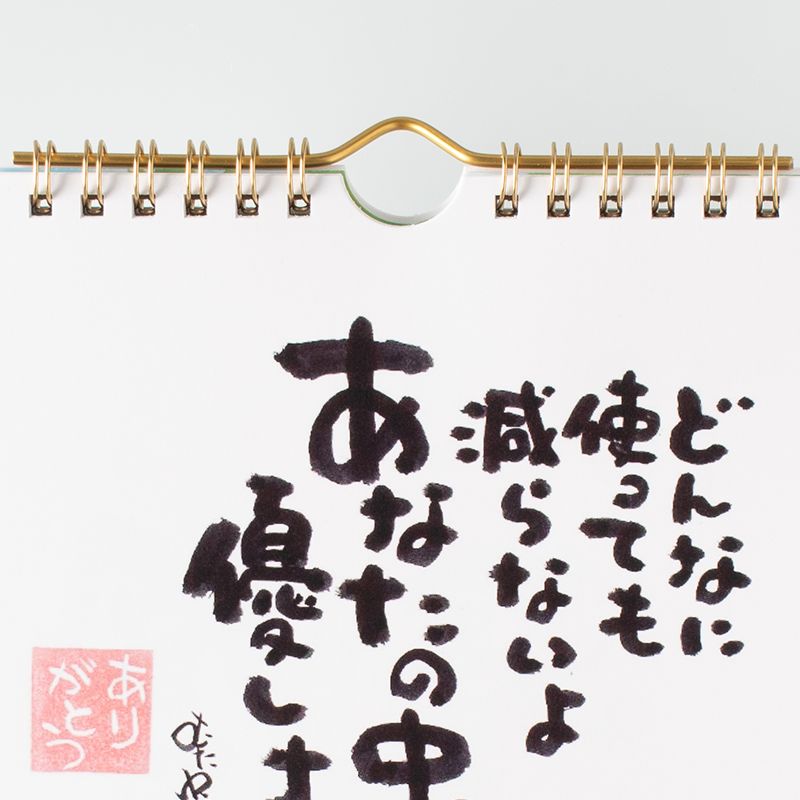 どんなに
使っても
減らないよ
あなたの中
優しさ
ありがとう